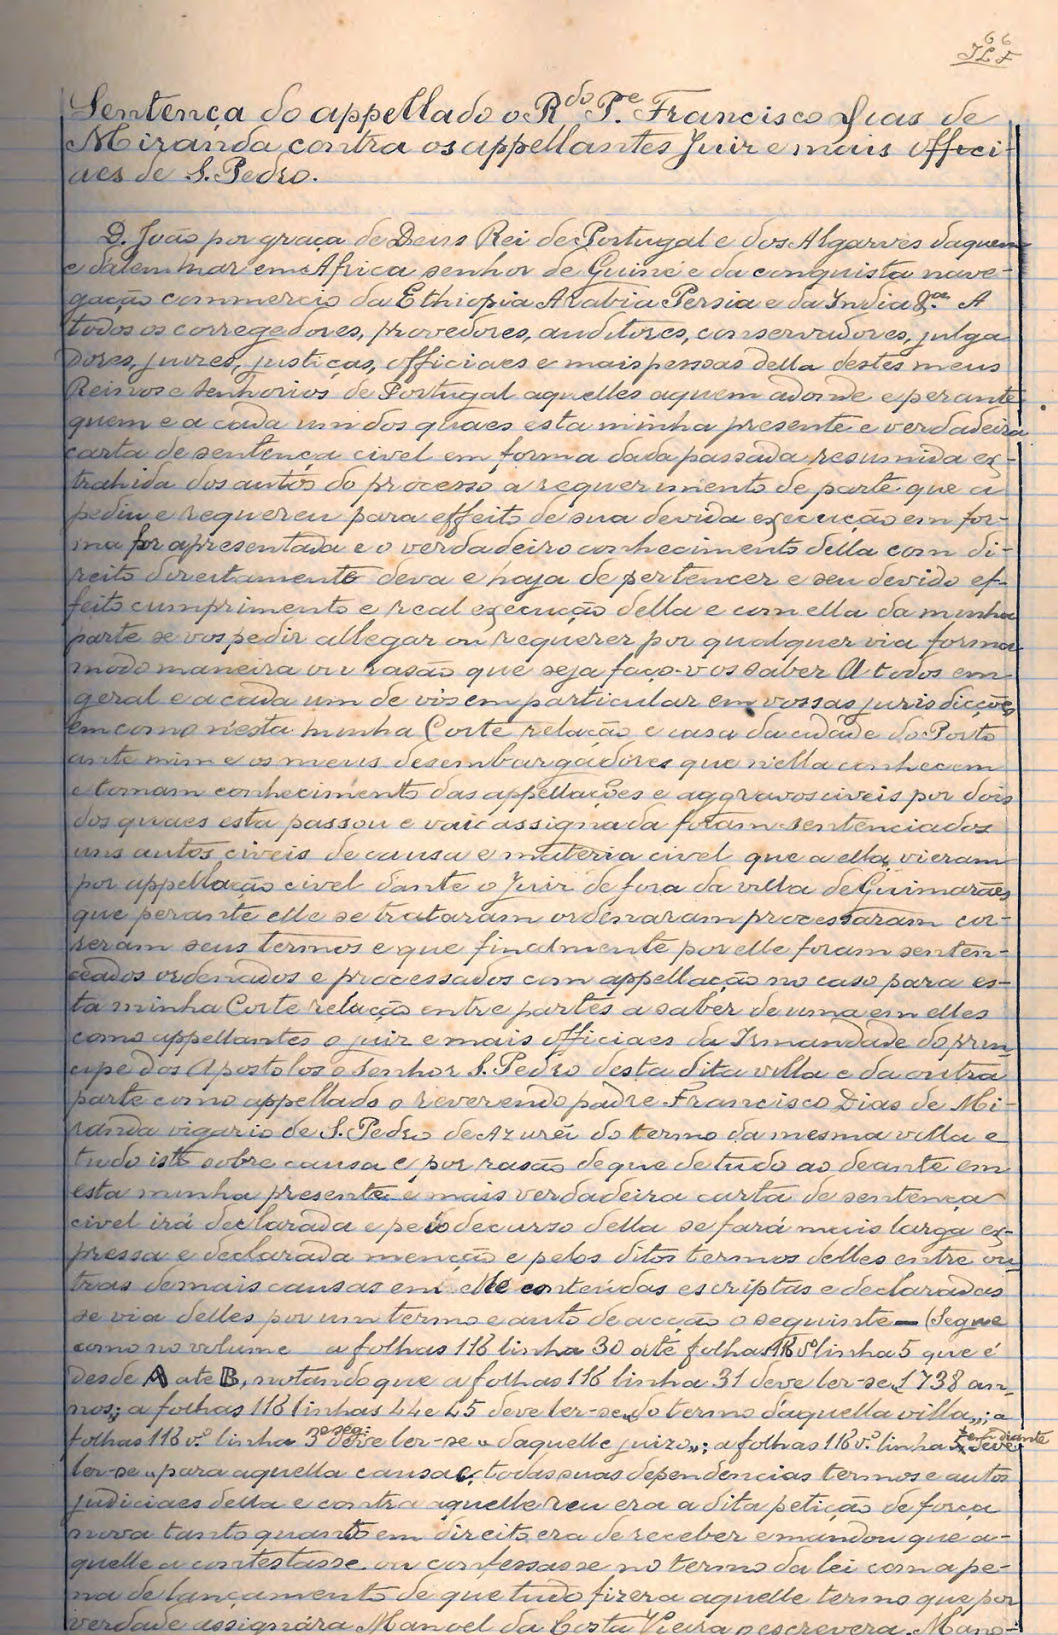 66
JLF
Sentença do appellado o R.do P.e Francisco Dias de
Miranda contra os appellantes Juiz e mais offici-
aes de S. Pedro.
D. João por graça de Deus Rei de Portugal e dos Algarves daquem
e dalem mar em Africa senhor de Guiné e da conquista nave-
gação commercio da Ethiopia Arabia Persia e da India &.ª A
todos os corregedores, provedores, auditores, conservadores, julga
dores, juizes, justiças, officiaes e mais pessoas della destes meus
Reinos e senhorios de Portugal aquelles aquem adonde e perante
quem e a cada um dos quaes esta minha presente e verdadeira
carta de sentença civel em forma dada passada resumida ex-
trahida dos autos do processo a requerimento de parte que a
pediu e requereu para effeito de sua devida execução em for-
ma for apresentada e o verdadeiro conhecimento della com di-
reito direitamente deva e haja de pertencer e seu devido ef-
feito cumprimento e real execução della e com ella da minha
parte se vos pedir allegar ou requerer por qualquer via forma
modo maneira ou rasão que seja faço-vos saber A todos em
geral e a cada um de vós em particular em vossas jurisdicções
em como n'esta minha Corte relação e casa da cidade do Porto
ante mim e os meus desembargadores que n'ella conhecem
e tomam conhecimento das appellações e aggravos civeis por dois
dos quaes esta passou e vai assignada foram sentenciados
uns autos civeis de causa e materia civel que a ella vieram
por appellação civel dante o Juiz de fora da villa de Guimarães
que perante elle se trataram ordenaram processaram cor-
reram seus termos e que finalmente por elle foram senten-
ceados ordenados e processados com appellação no caso para es-
ta minha Corte relação entre partes a saber de uma em elles
como appellantes o juiz e mais officiaes da Irmandade do prin-
cipe dos Apostolos o Senhor S. Pedro desta dita villa e da outra
parte como appellado o reverendo padre Francisco Dias de Mi-
randa vigario de S. Pedro de Azurei do termo da mesma villa e
tudo isto sobre causa e por rasão de que de tudo ao deante em
esta minha presente e mais verdadeira carta de sentença
civel irá declarada e pelo decurso della se fará mais larga ex-
pressa e declarada menção e pelos ditos termos delles entre ou-
tras demais causas em elle conteudas escriptas e declaradas
se via delles por um termo e auto de acção o seguinte — (Segue
como no volume a folhas 116 linha 30 até folhas 118 vº linha 5 que é
desde A ate B, notando que a folhas 116 linha 31 deve ler-se "1738 an-
nos"; a folhas 116 linhas 44 e 45 deve ler-se "do termo d'aquella villa"; a
folhas 118 v.º linha 3 e seg. deve ler-se "daquelle juizo"; a folhas 118 v.º linha 5 em diante deve
ler-se "para aquella causa e todas suas dependencias termos e autos
judiciaes della e contra aquelle reu era a dita petição de força
nova tanto quanto em direito era de receber e mandou que a-
quelle a contestasse ou confessasse no termo da lei com a pe-
na de lançamento de que tudo fizera aquelle termo que por
verdade assignára Manoel da Costa Vieira o escrevera. Mano-